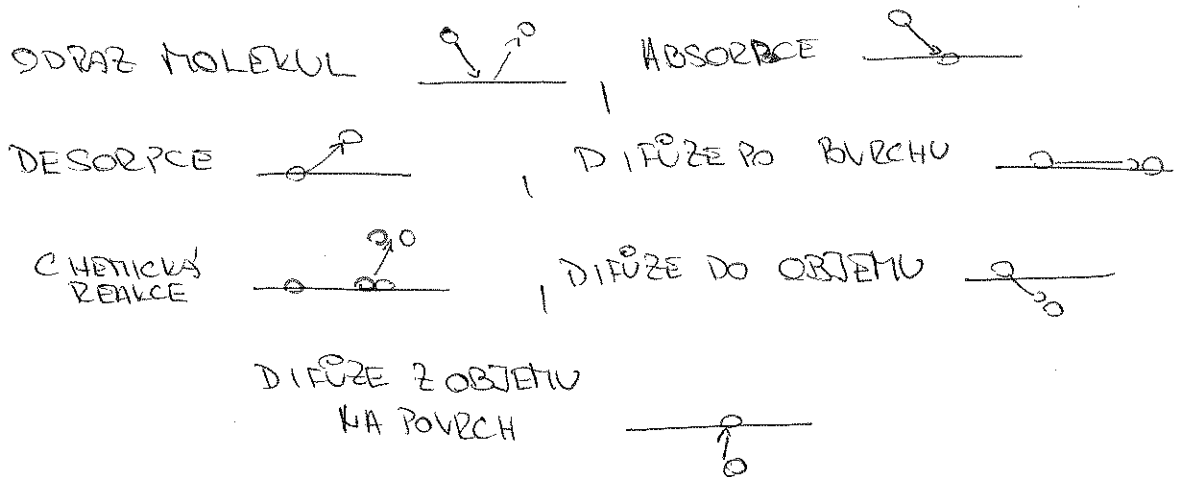 ODRAZ MOLEKUL , ABSORPCE
DESORPCE , DIFŮZE PO POVRCHU
CHEMICKÁ
REAKCE , DIFŮZE DO OBJEMU
DIFŮZE Z OBJEMU
NA POVRCH